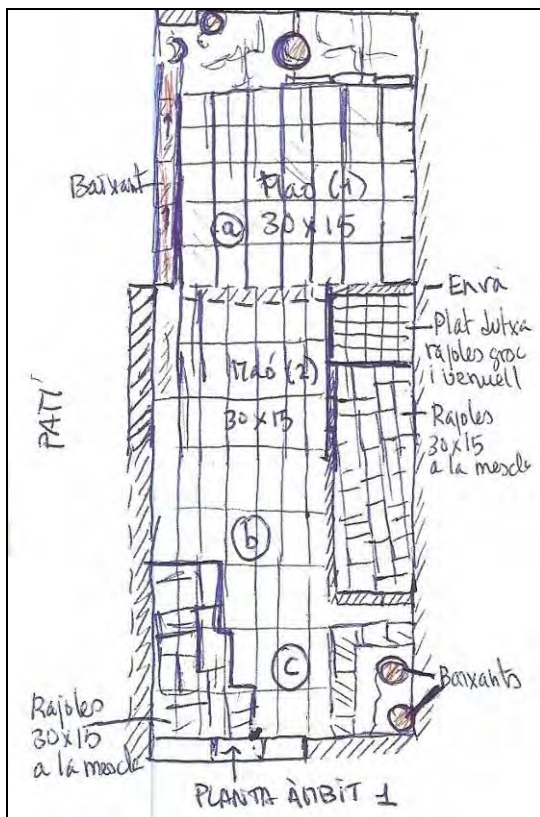 Baixant
Maó (1)
30 x 15
a
Envà
Plat dutxa
rajoles groc
i vermell
Maó (2)
30 x 15
Rajoles
30x15
a la mescla
PATI
b
c
Baixants
Rajoles
30x15
a la mescla
PLANTA ÀMBIT 1